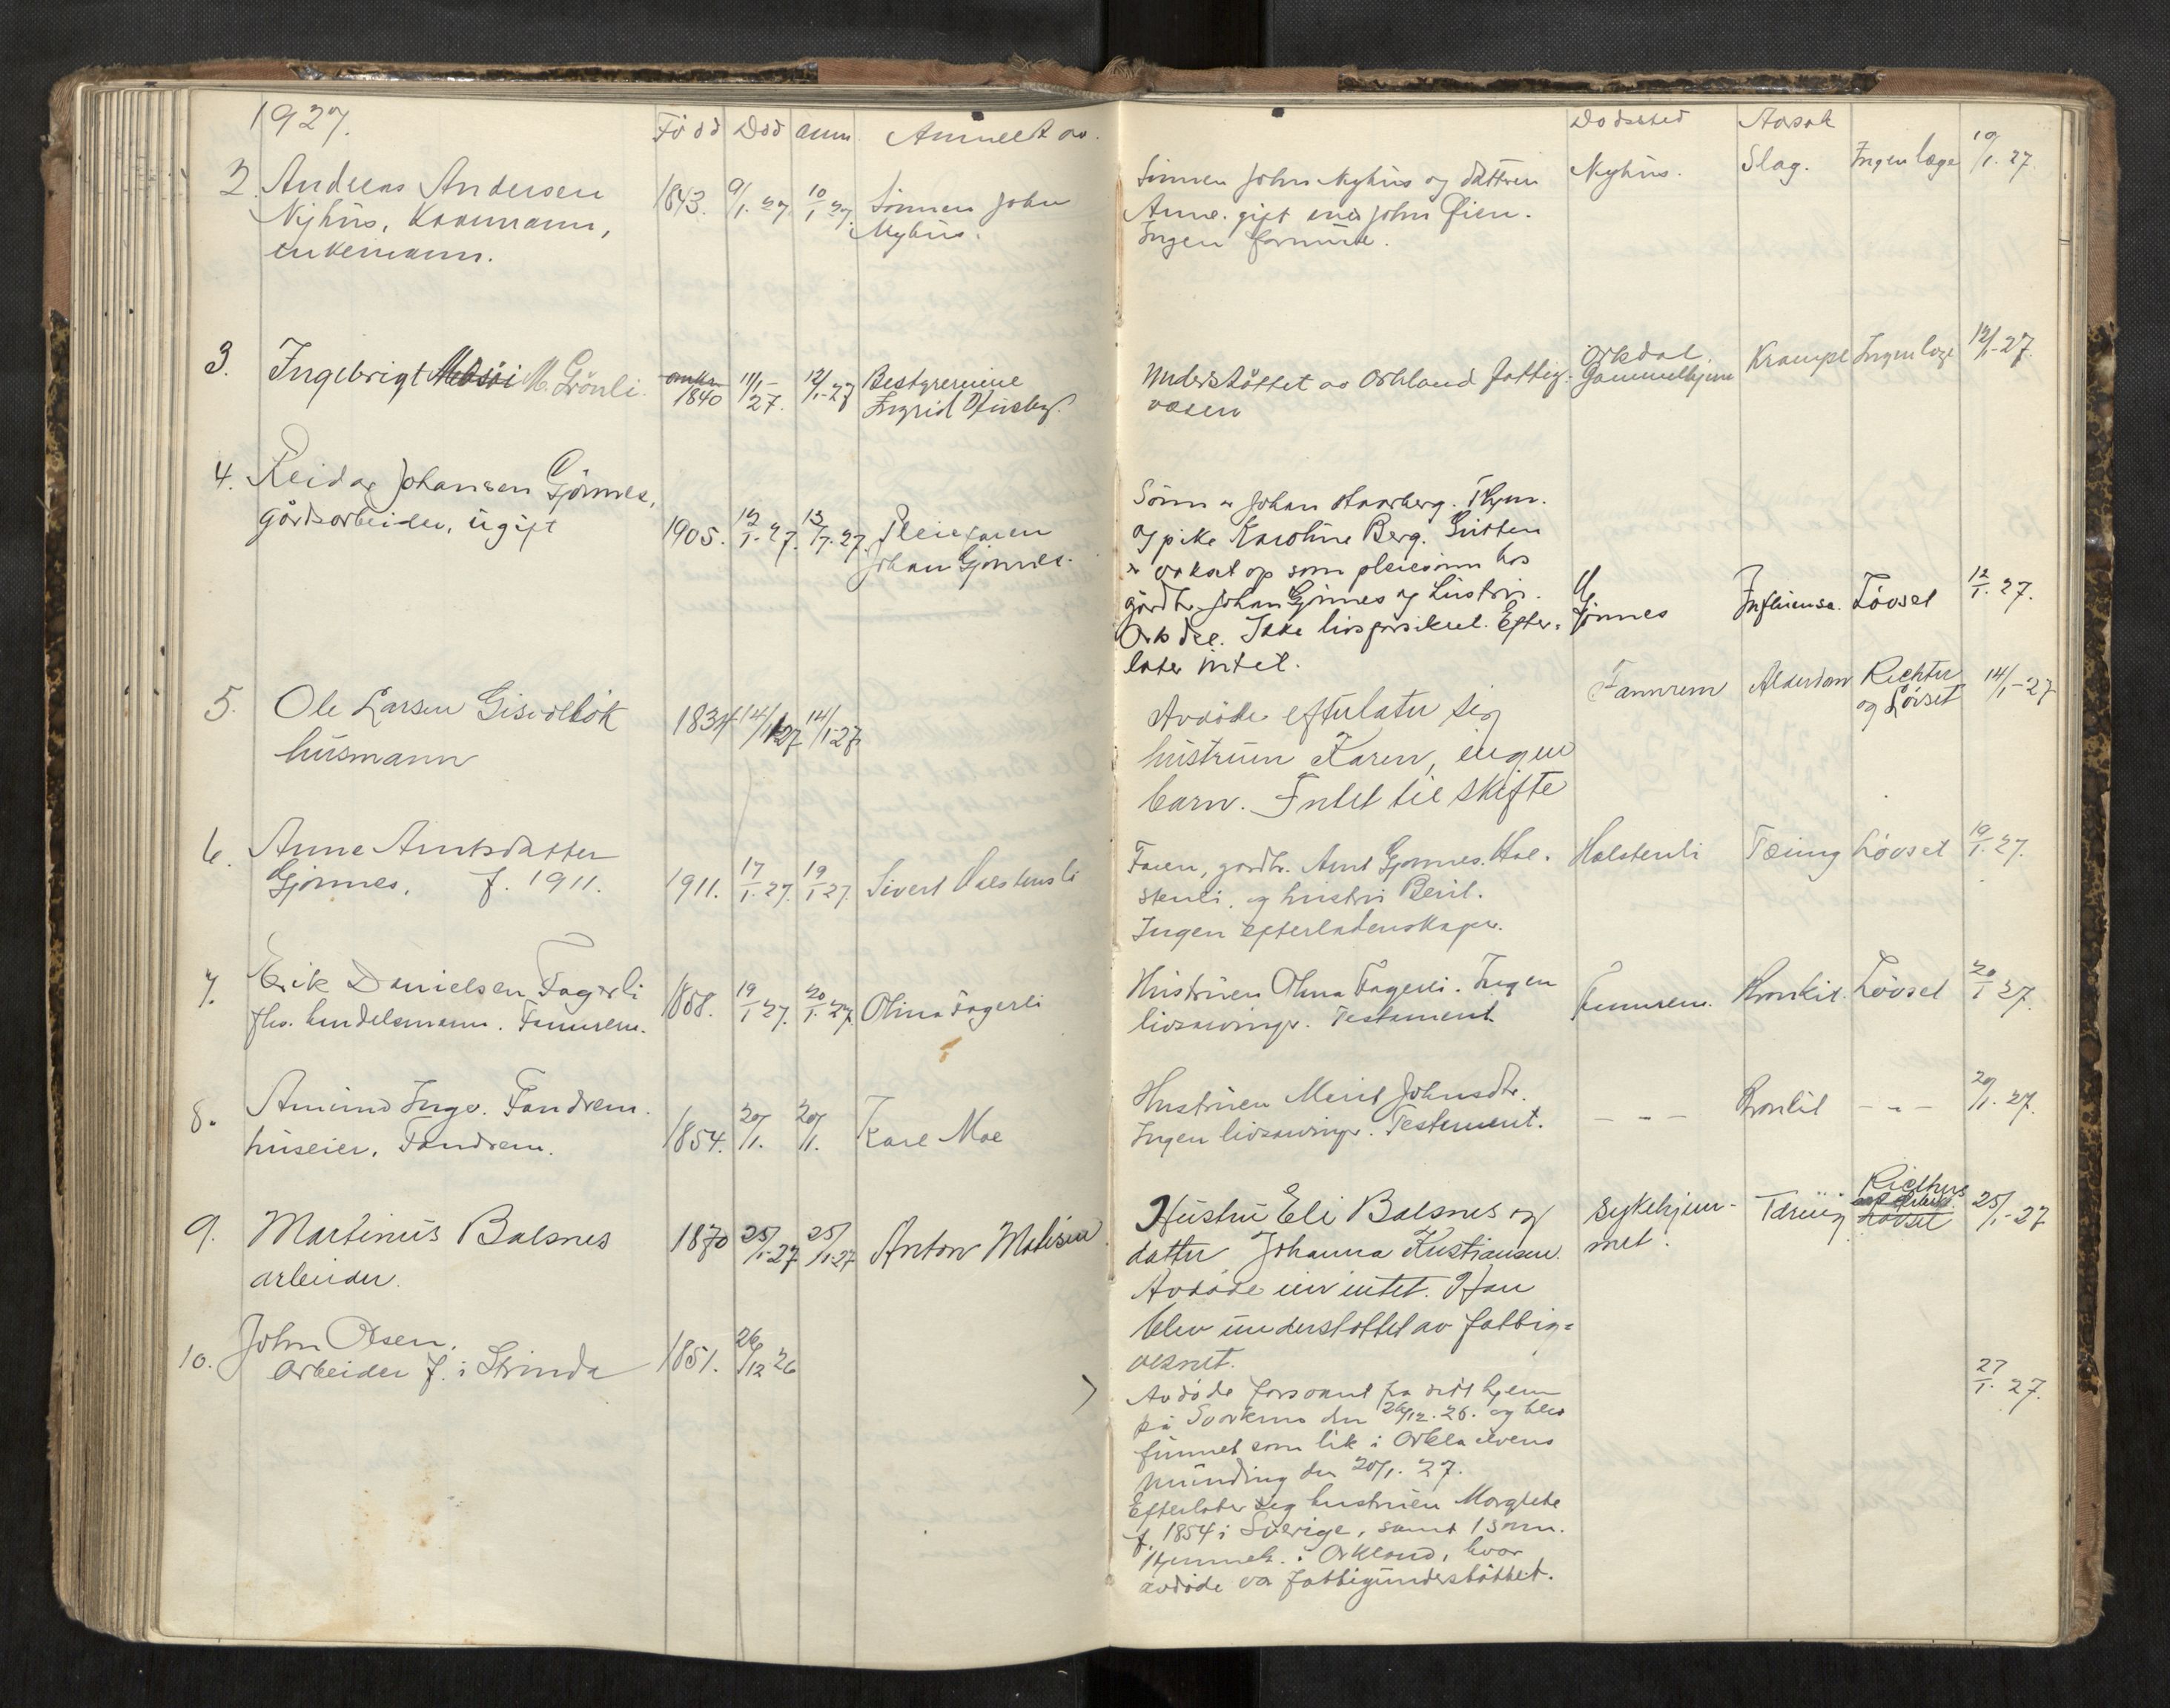 1927.
Född Död anm. Anmeldt av.
Dödssted Aarsak
2. Andreas Andersen
Nyhus, Kaarmann,
enkemann.
1843. 9/1. 27. 10/1 27. Sönnen John
Nyhus.
Sönnen John Nyhus og dattren
Anne. gift med John Öien.
Ingen formue.
Nyhus. Slag. Ingen læge 10/1. 27.
3. Ingebrigt M. Grönli.
1840 11/1-27. 12/1-27 Bestyrerinne
Ingrid Husby.
Understöttet av Orkland fattig-
væsen
Orkdal.
Gammelhjem Krampe Ingen læge 12/1-27.
4. Reidar Johansen Gjönnes,
gårdsarbeider, ugift
1905. 12/1. 27. 13/1. 27. Pleiefaren
Johan Gjönnes.
Sönn av Johan Haarberg.
og pike Karoline Berg. Gutten
er vokset op som pleiesönn hos
gårdbr. Johan Gjönnes og hustru.
Orkdal. Ikke livsforsikret. Efter-
later intet.
Gjönnes Influensa. Lövset 12/1. 27.
5. Ole Larsen Gisvolbök
husmann
1834 14/1 27 14/1-27
Avdöde efterlater sig
hustruen Karen, ingen
barn. Intet til skifte
Fannrem Alderdom Richter
og Lövset 14/1-27
6. Anne Arntsdatter
Gjönnes, f. 1911.
1911. 17/1. 27. 19/1 27. Sivert Halstensli
Faren, gardbr. Arnt Gjönnes. Hal-
stenli, og hustru Berit.
Ingen efterladenskaper.
Halstenli Tæring Lövset 19/1. 27.
7. Erik Danielsen Fagerli
fhv. handelsmann. Fannrem.
1858. 19/1 27. 20/1. 27. Olina Fagerli
Hustruen Olina Fagerli. Ingen
livsarvinger. Testament
Fannrem. Bronkit. Lövset 20/1 27.
8. Amund Ingv. Fandrem.
huseier, Fandrem.
1854. 20/1. 20/1. Karl Moe
Hustruen Merit Johnsdtr.
Ingen livsarvinger. Testament.
- - - Bronkit - - - 20/1. 27.
9. Martinus Balsnes
arbeider.
1870 25/1-27 25/1-27 Anton Molisen
Hustru Eli Balsnes og
datter Johanna Kristiansen.
Avdöde eier intet. Han
blev understöttet av fattig-
vesnet.
Sykehjem-
met. Tæring Richter
Lövset 25/1-27
10. John Olsen,
Arbeider f. i Strinda
1851. 26/12 26
Avdöde forsvant fra sitt hjem
på Svorkmo den 26/12. 26. og blev
funnet som lik i Orkla elvens
munding den 20/1. 27.
Efterlater sig hustruen Margrete
f. 1854 i Sverige, samt 1 sönn.
Hjemmeh. i Orkland, hvor
avdöde var fattigunderstöttet.
27/1. 27.